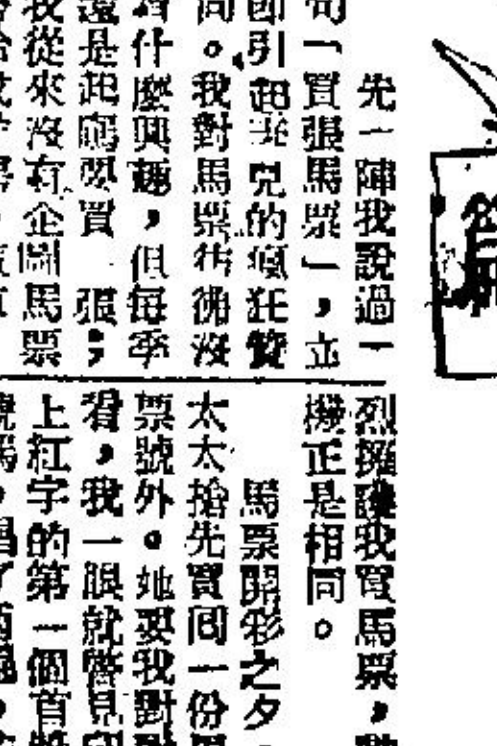 先一陣我說過一
句「買張馬票」，立
即引起兒的瘋狂贊
同。我對馬票彷彿沒
有什麼興趣，但每季
還是起碼要買一張；
我從來沒有企圖馬票
烈擁護我買馬票，
機正是相同。
馬票開彩之夕，
太太搶先買囘一份
票號外。她要我對
看，我一眼就瞥見印
上紅字的第一個首